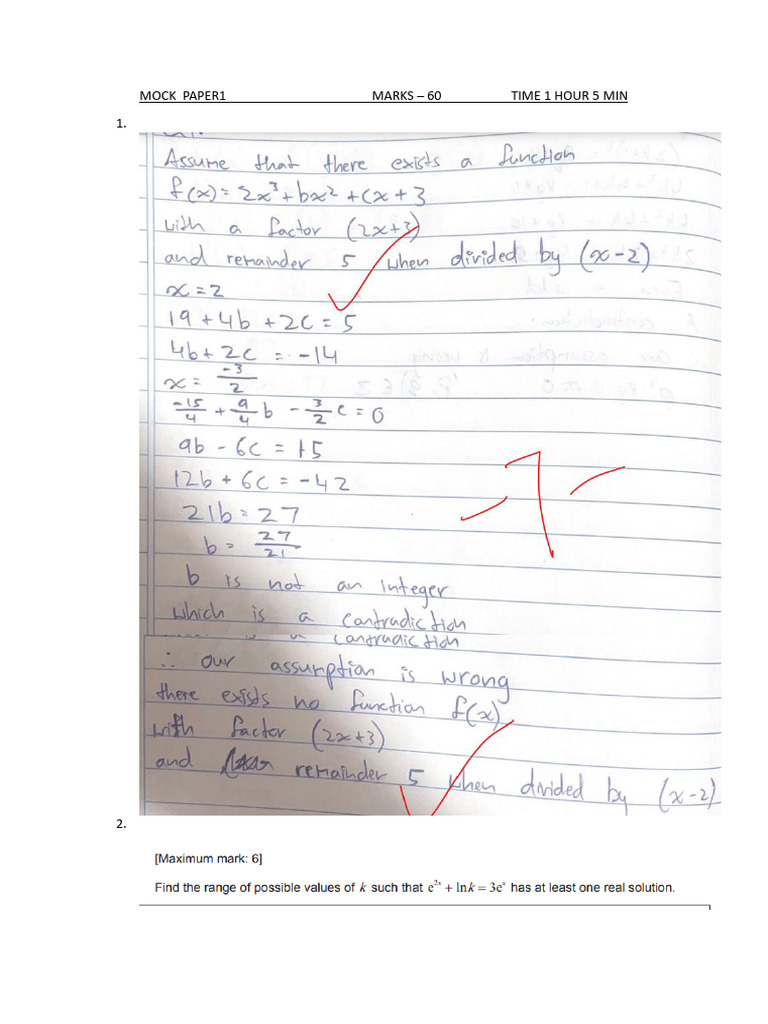 MOCK PAPER1 MARKS – 60 TIME 1 HOUR 5 MIN
1.
Assume that there exists a function
f(x) = 2x³ + bx² + cx + 3
with a factor (2x+3)
and remainder 5 when divided by (x-2)
x = 2
19 + 4b + 2c = 5
4b + 2c = -14
x = -3/2
-15/4 + 9/4 b - 3/2 c = 0
9b - 6c = 15
12b + 6c = -42
21b = 27
b = 27/21
b is not an integer
which is a contradiction
contradiction
∴ our assumption is wrong
there exists no function f(x)
with factor (2x+3)
and remainder 5 when divided by (x-2)
2.
[Maximum mark: 6]
Find the range of possible values of k such that e²ˣ + ln k = 3eˣ has at least one real solution.